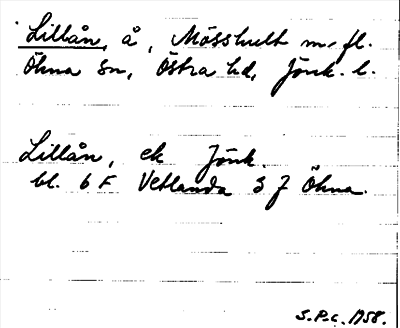 Lillån, å, Mösshult m. fl.
Öhna sn, Östra hd, Jönk. l.
Lillån, ek Jönk.
bl. 6 F Vetlanda S J Öhna.
S.P.C. 1958.